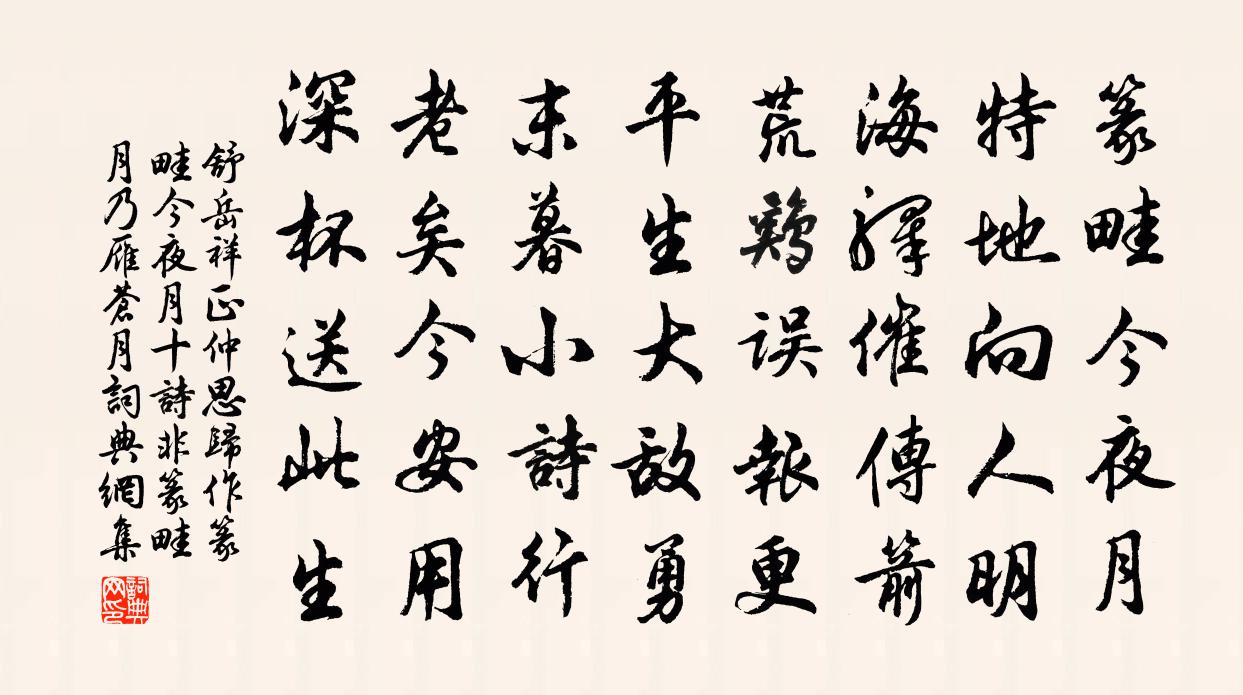 篆畦今夜月
特地向人明
海驛催傳箭
荒鷄誤報更
平生大敌勇
末暮小詩行
老矣今安用
深杯送此生
舒岳祥正仲思歸作篆
畦今夜月十詩非篆畦
月乃雁蒼月詞典網集
詞典网印